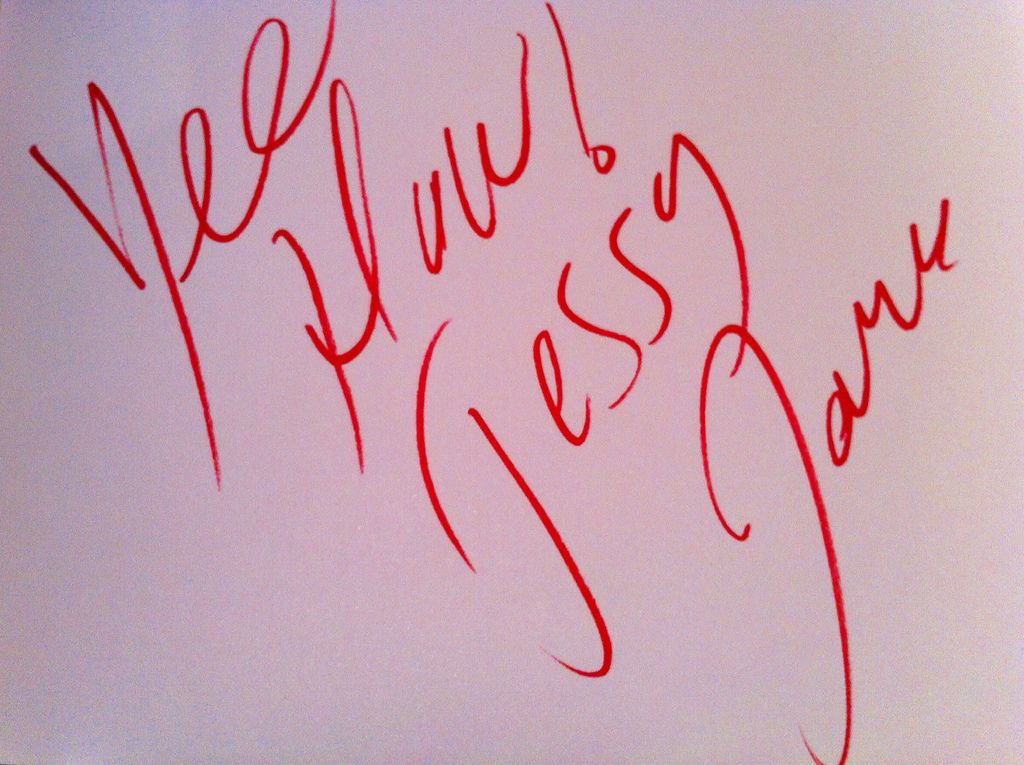 Yee Haw!
Jessy
Jark